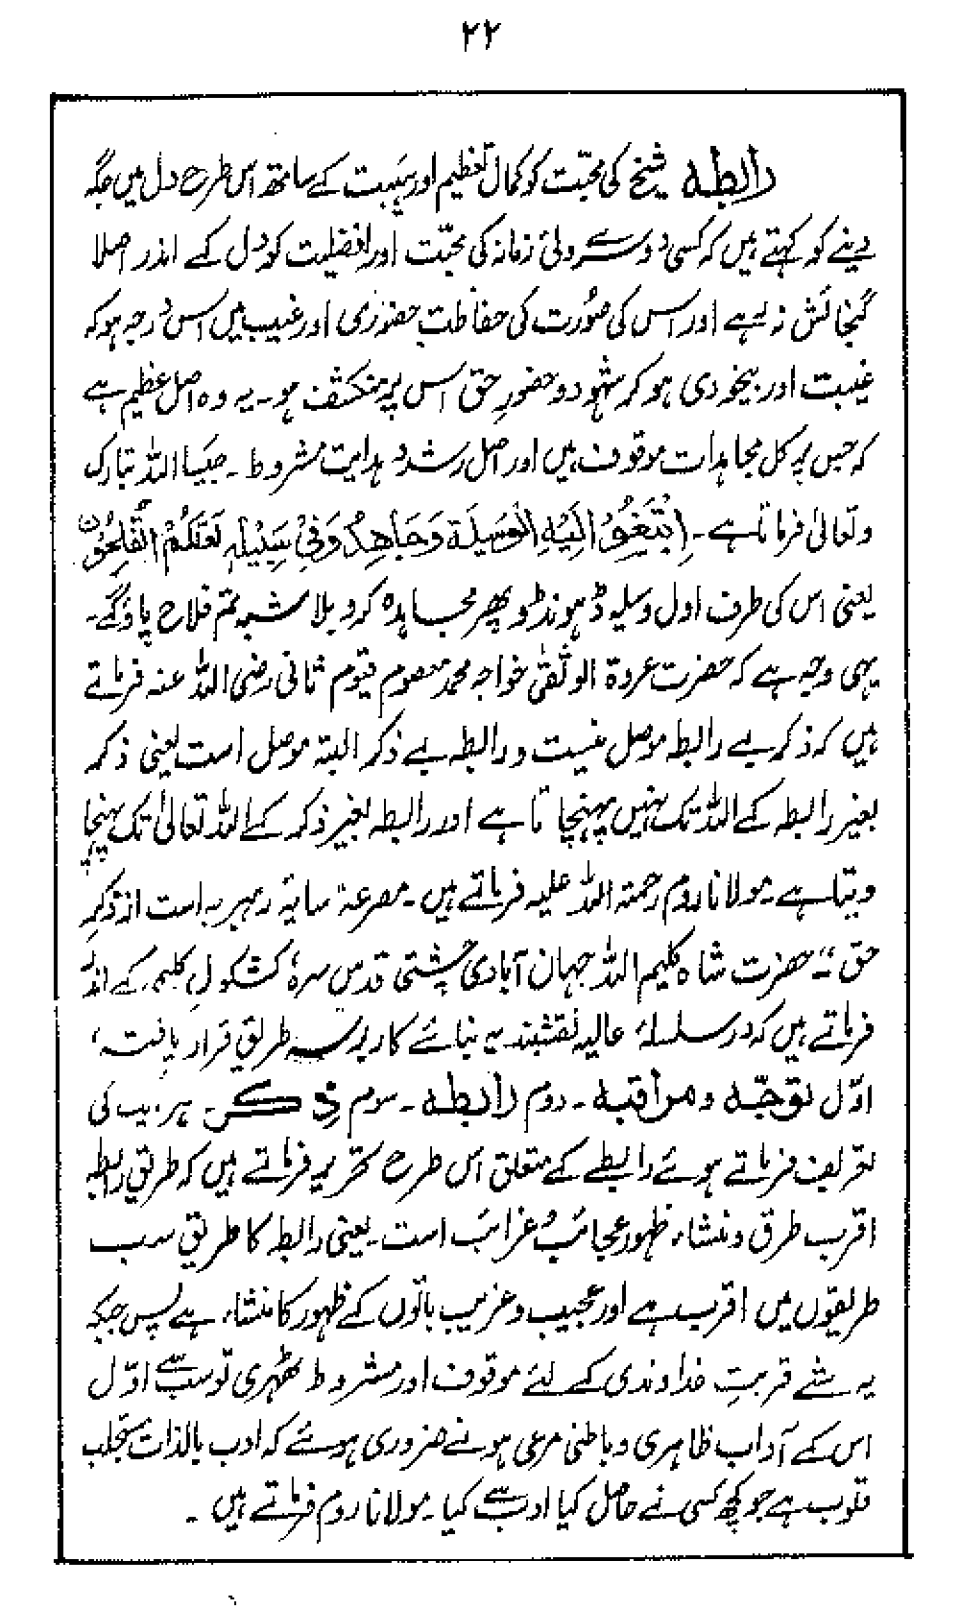 ۲۲
رابطہ شیخ کی محبّت کو کمال تعظیم اور ہیبت کے ساتھ اس طرح دل میں جگہ
دینے کو کہتے ہیں کہ کسی دوسرے ولئ زمانہ کی محبّت اور افضلیت کو دل کے اندر اصلا
گنجائش نہ رہے اور اس کی صورت کی حفاظت حضوری اور غیب میں اس درجہ ہو کہ
غیبت اور بیخودی ہو کر شہود و حضورِ حق اس پر منکشف ہو۔ یہ وہ اصل عظیم ہے
کہ جس پر کل مجاہدات موقوف ہیں اور اصل رشد و ہدایت مشروط۔ جیسا اللہ تبارک
وتعالیٰ فرماتا ہے۔ اِبْتَغُوْٓ اِلَیْہِ الْوَسِیْلَۃَ وَجَاھِدُوْ فِیْ سَبِیْلِہٖ لَعَلَّکُمْ تُفْلِحُوْن
یعنی اس کی طرف اول وسیلہ ڈھونڈو پھر مجاہدہ کرو بلا شبہ تم فلاح پاؤگے۔
یہی وجہ ہے کہ حضرت عروۃ الوثقیٰ خواجہ محمد معصوم قیوم ثانی رضی اللہ عنہ فرماتے
ہیں کہ ذکر بے رابطہ موصل نیست و رابطہ بے ذکر البتہ موصل است یعنی ذکر
بغیر رابطہ کے اللہ تک نہیں پہنچاتا ہے اور رابطہ بغیر ذکر کے اللہ تعالیٰ تک پہنچا
دیتا ہے۔ مولانا روم رحمۃ اللہ علیہ فرماتے ہیں۔ مصرعہ سایۂ رہبر بہ است از ذکرِ
حق "۔ حضرت شاہ کلیم اللہ جہان آبادی چشتی قدس سرہٗ کشکولِ کلیمی کے اندر
فرماتے ہیں کہ در سلسلۂ عالیہ نقشبندیہ بنائے کار بہ سہ طریق قرار یافتہ،
اوّل توجّہ و مراقبہ۔ دوم رابطہ۔ سوم ذکر ہر یک کی
تعریف فرماتے ہوئے رابطے کے متعلق اس طرح تحریر فرماتے ہیں کہ طریق رابطہ
اقرب طرق و منشاء ظہور عجائب و غرائب است۔ یعنی رابطہ کا طریق سب
طریقوں میں اقرب ہے اور عجیب و غریب باتوں کے ظہور کا منشاء ہے پس جبکہ
یہ شے قربتِ خداوندی کے لئے موقوف اور مشروط ٹھہری تو سب سے اوّل
اس کے آداب ظاہری و باطنی مرعی ہونے ضروری ہوئے کہ ادب بالذات مستجلب
قلوب ہے جو کچھ کسی نے حاصل کیا ادب سے کیا۔ مولانا روم فرماتے ہیں۔